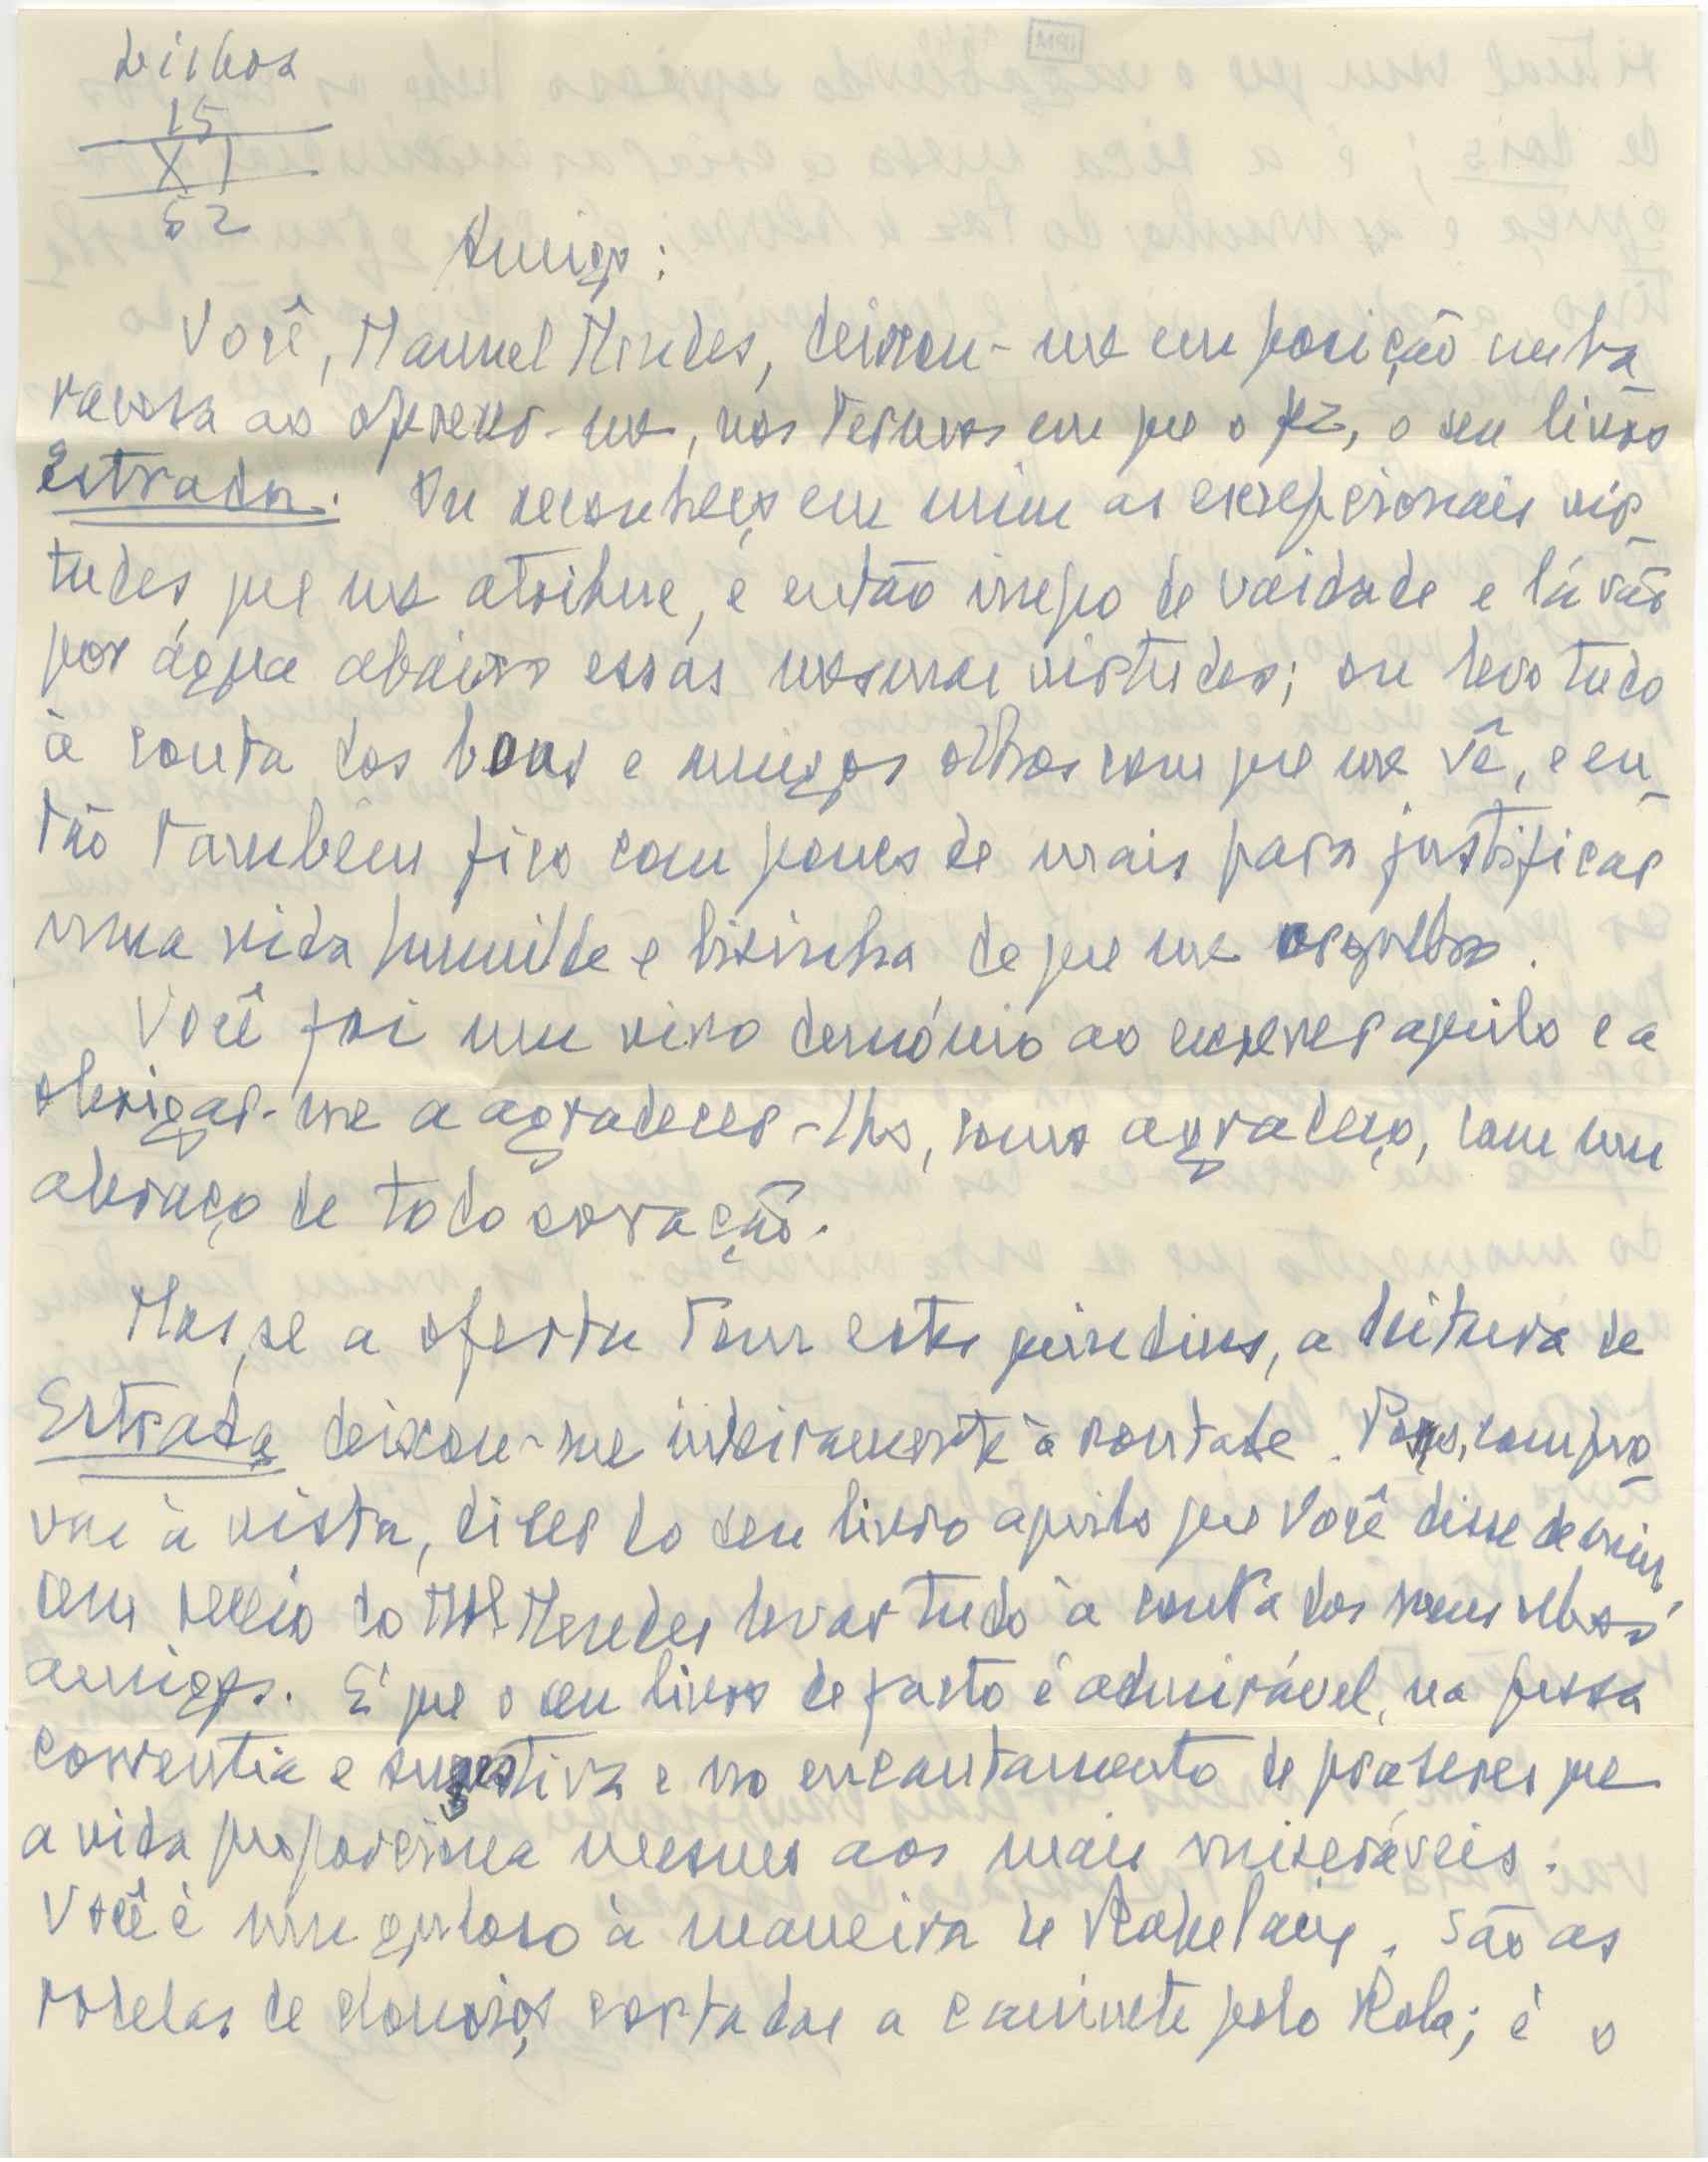 Lisboa
15
XI
52
Amigo:
Você, Manuel Mendes, deixou-me em posição emba
raçosa ao oferecer-me, nos termos em que o fez, o seu livro
Estrada. Ou reconheço em mim as excepcionais vir-
tudes que me atribue, e então inepo de vaidade e lá vão
por água abaixo essas mesmas virtudes; ou levo tudo
à conta dos bons e amigos olhos com que me vê, e en-
tão também fico com pouco de mais para justificar
uma vida humilde e lisinha de que me orgulho.
Você foi um vivo demónio ao escrever aquilo e a
obrigar-me a agradecer-lho, como agradeço, com um
abraço de todo coração.
Mas, se a oferta tem estes quindins, a leitura de
Estrada deixou-me inteiramente à vontade. Posso, com pro-
vas à vista, dizer do seu livro aquilo que Você disse de mim,
sem receio do Mel Mendes levar tudo à conta dos meus olhos
amigos. É que o seu livro de facto é admirável, na prosa
correntia e sugestiva e no encantamento de prazeres que
a vida proporciona mesmo aos mais miseráveis.
Você é um guloso à maneira de Rabelais. São as
rodelas de chouriço cortadas a canivete pelo Rola; é o